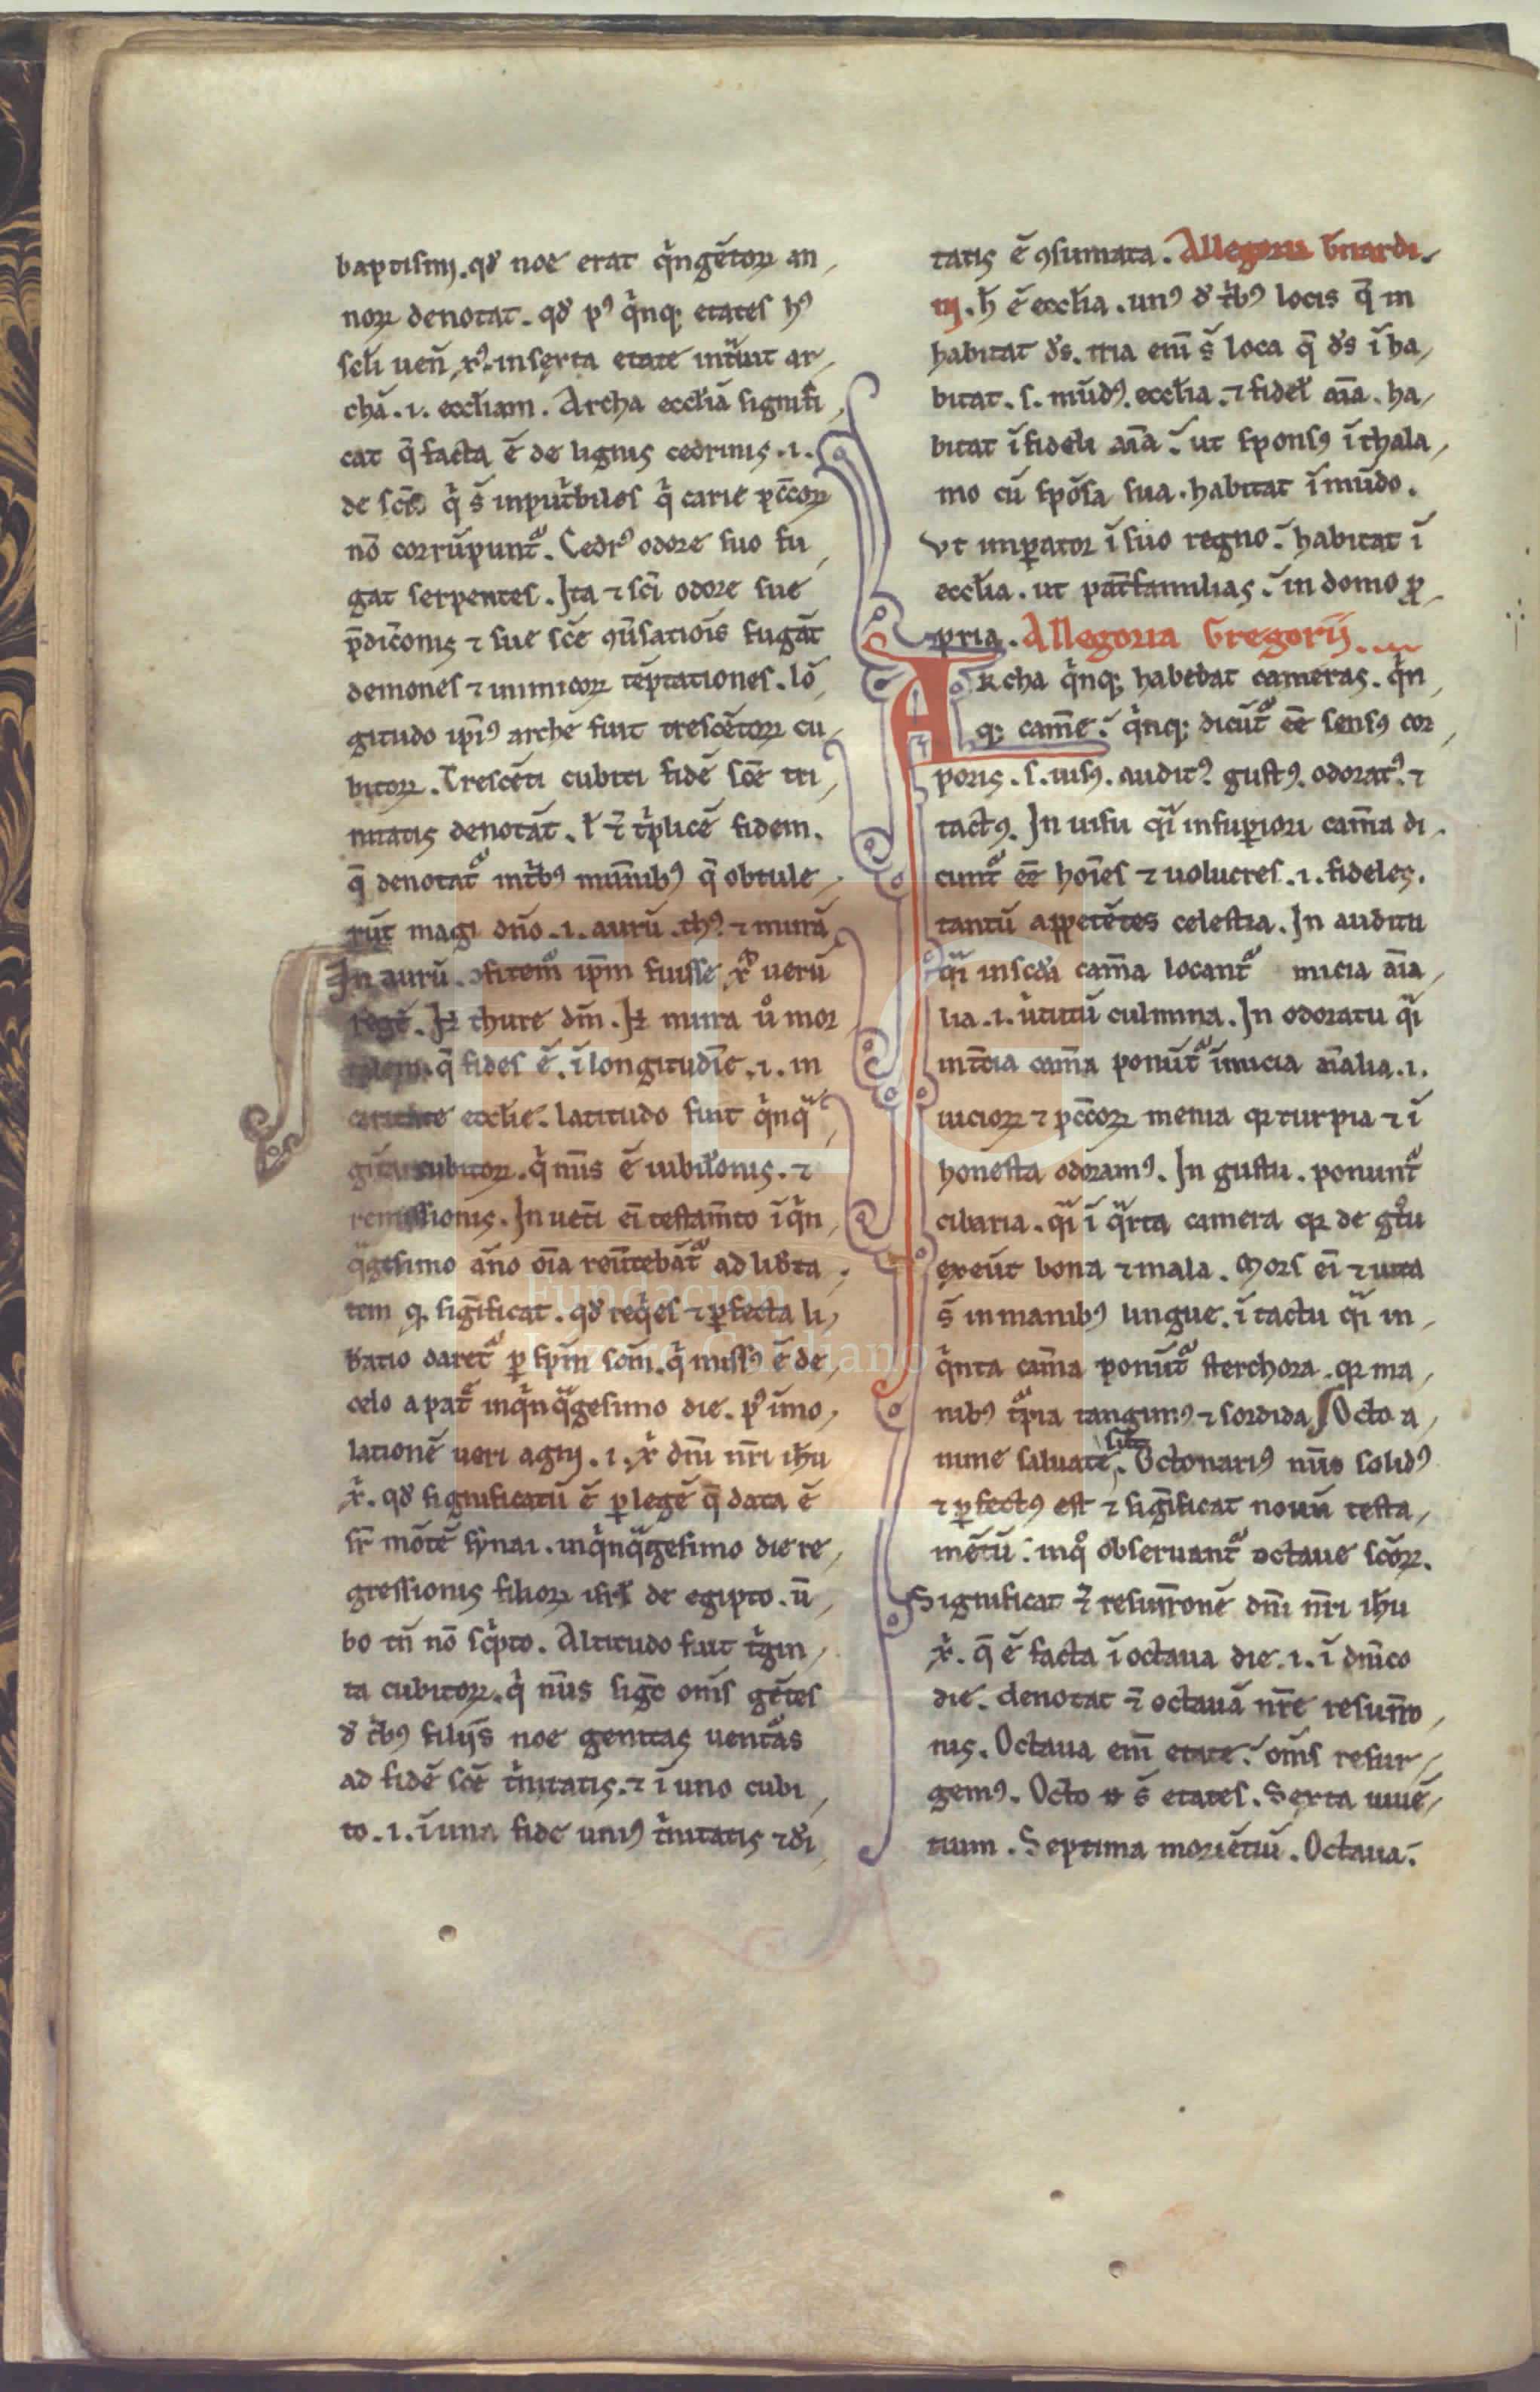 baptismi. qđ noe erat q̇ngẽtoꝝ an
noꝝ denotat. qđ pꝰ q̇nqꝫ etates hꝰ
scł̃i ueñ x̃ꝰ. in serta etate int̃uit ar
chã. i. eccłiam. Archa eccłiã signifi
cat q̃ facta ẽ de lignis cedrinis. i.
de scĩs q̇ s̃ input̃biles q̇ carie pc̃coꝝ
nõ corrũpunt᷑. Cedrꝰ odore suo fu
gat serpentes. Ita ⁊ scĩ odore sue
p̃dic̃onis ⁊ sue sc̃e ꝯũsatiõis fugãt
demones ⁊ inimicoꝝ tẽptationes. lõ
gitudo ip̃iꝰ arche fuit trescẽtoꝝ cu
bitoꝝ. Trescẽti cubiti fidẽ sc̃e tri
nitatis denotãt. ł ⁊̃ ṫplicẽ fidem.
q̃ denotat᷑ in ṫbꝰ muñibꝰ q̃ obtule
rũt magi dño. i. aurũ. thꝰ. ⁊ mirrã
In aurũ. ꝯfitem᷑ ip̃m fuisse x̃ uerũ
regẽ. In thure dm̃. In mirra ů mor
talem. q̃ fides ẽ. ĩ longitudĩe. i. in
caritate eccłie. latitudo fuit q̇nqͣ
ginta cubitoꝝ. q̇ nũs ẽ iubił̃onis. ⁊
remissionis. In uet̃i ei testam̃to ĩ q̇n
qͣgesimo año oĩa reũtebãt᷑ ad lib̃ta
tem q. sig̃ificat. qđ reqͥes ⁊ ꝑfecta li
b̃atio daret᷑ ꝑ sp̃m scm̃. q̇ missꝰ ẽ de
celo a pat̃ in q̇nqͣgesimo die. pꝰ ĩmo
lationẽ ueri agni. i. x̃ dñi nr̃i ihũ
x̃. qđ significatũ ẽ ꝑ legẽ q̃ data ẽ
sr̃ mõtẽ synai. in q̇nqͣgesimo die re
gressionis filioꝝ isrł de egipto. ũ
bo tñ nõ sċpto. Altitudo fuit ṫgin
ta cubitoꝝ. q̇ nũs sigᷓt om̃s gẽtes
đ ṫbꝰ filijs noe genitas uent᷑as
ad fidẽ sc̃e ṫnitatis. ⁊ ĩ uno cubi
to. i. ĩ una fide uniꝰ ṫnitatis ⁊ đi
tatis ẽ ꝯsumata. Allegoria b̃nardi.
iij. h̃ ẽ eccłia. unꝰ đ ṫbꝰ locis q̃ in
habitat đs. tria eni s̃ loca q̃ đs ĩ ha
bitat. s. mũdꝰ. eccłia. ⁊ fideł aĩa. ha
bitat ĩ fideli aĩa. ut sponsꝰ ĩ thala
mo cũ spõsa sua. habitat ĩ mũdo.
vt imꝑator ĩ suo regno. habitat ĩ
eccłia. ut pat̃familias. in domo ꝓ
pria. Allegoria Gregorij.
ARcha q̇nqꝫ habebat cameras. q̇n
qꝫ cam̃e. q̇nqꝫ dicũt᷑ ee̅ sensꝰ cor
poris. s. uisꝰ. auditꝰ. gustꝰ. odoratꝰ. ⁊
tactꝰ. In uisu qͣi in suꝑiori cam̃a di
cunt᷑ ee̅ hoĩes ⁊ uolucres. i. fideles.
tantũ appetẽtes celestia. In auditu
qͣi in scđa cam̃a locant᷑ micia aĩa
lia. i. ũtutũ culmina. In odoratu qͣi
in t̃cia cam̃a ponũt᷑ ĩmicia aĩalia. i.
uicioꝝ ⁊ pc̃coꝝ menia qꝛ turpia ⁊ ĩ
honesta odoramꝰ. In gustu. ponunt᷑
cibaria. qͣi ĩ qͣrta camera qꝛ de gt̃u
exeũt bona ⁊ mala. Mors eĩ ⁊ uita
s̃ in manibꝰ lingue. ĩ tactu qͣi in
q̇nta cam̃a ponũt᷑ sterchora. qꝛ ma
nibꝰ t᷑pia tangimꝰ ⁊ sordida Octo a
nime saluate. Octonariꝰ nũs solidꝰ
⁊ ꝑfectꝰ est ⁊ sig̃ificat nouũ testa
mẽtũ. in qͦ obseruant᷑ octaue sc̃oꝝ.
Significat ⁊̃ resurr̃onẽ dñi nr̃i ihũ
x̃. q̃ ẽ facta ĩ octaua die. i. ĩ dñico
die. denotat ⁊̃ octauã nr̃e resurr̃o
nis. Octaua eni etate. om̃s resur
gemꝰ. Octo s̃ etates. Serta uiuẽ
tium. Septima moriẽtiũ. Octaua.